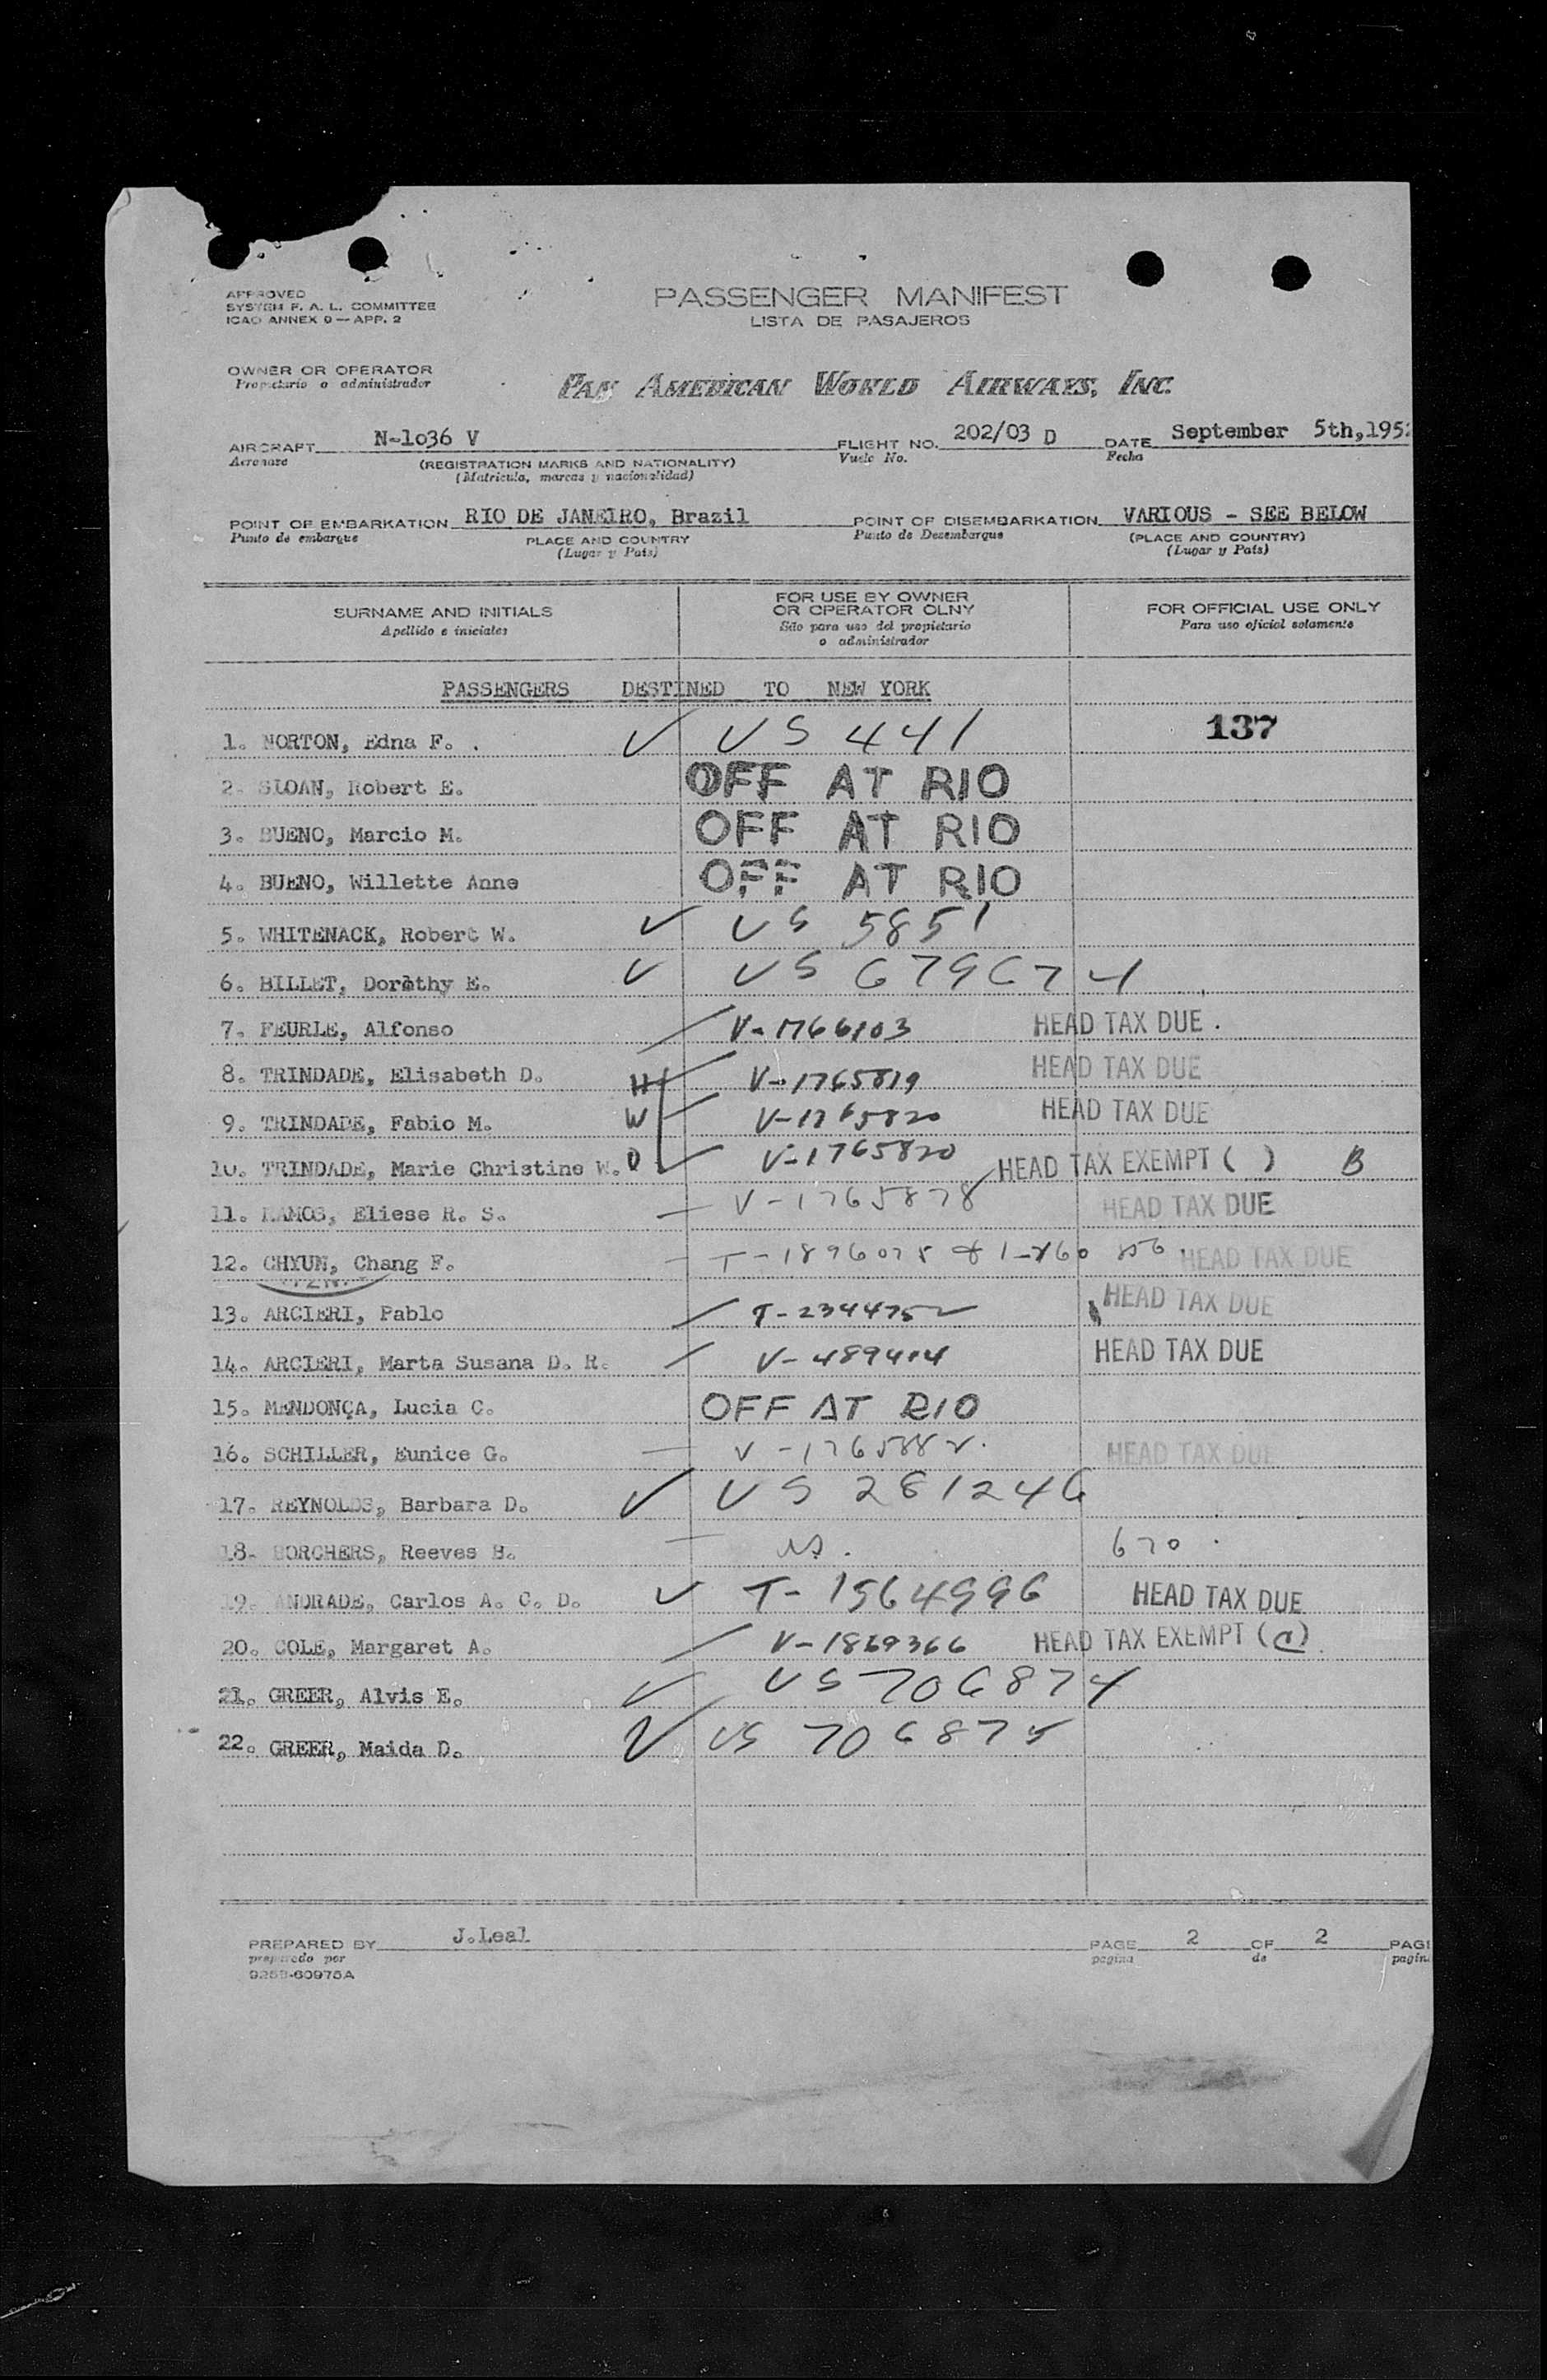 APPROVED
SYSTEM F. A. L. COMMITTEE
ICAO ANNEX 9 — APP. 2
PASSENGER MANIFEST
LISTA DE PASAJEROS
OWNER OR OPERATOR
Propietario o administrador
PAN AMERICAN WORLD AIRWAYS, INC.
AIRCRAFT N-1o36 V FLIGHT NO. 202/03 D DATE September 5th,195
Aeronave (REGISTRATION MARKS AND NATIONALITY) Vuelo No. Fecha
(Matricula, marcas y nacionalidad)
POINT OF EMBARKATION RIO DE JANEIRO, Brazil POINT OF DISEMBARKATION VARIOUS - SEE BELOW
Punto de embarque PLACE AND COUNTRY Punto de Desembarque (PLACE AND COUNTRY)
(Lugar y Pais) (Lugar y Pais)
SURNAME AND INITIALS
Apellido e iniciales
FOR USE BY OWNER
OR OPERATOR OLNY
Sólo para uso del propietario
o administrador
FOR OFFICIAL USE ONLY
Para uso oficial solamente
PASSENGERS DESTINED TO NEW YORK
1. NORTON, Edna F. . US 441 137
2. SLOAN, Robert E. OFF AT RIO
3. BUENO, Marcio M. OFF AT RIO
4. BUENO, Willette Anne OFF AT RIO
5. WHITENACK, Robert W. US 5851
6. BILLET, Dorothy E. US 679674
7. FEURLE, Alfonso V-1766103 HEAD TAX DUE .
8. TRINDADE, Elisabeth D. H V-1765819 HEAD TAX DUE
9. TRINDADE, Fabio M. W V-1765820 HEAD TAX DUE
10. TRINDADE, Marie Christine W. D V-1765820 HEAD TAX EXEMPT ( ) B
11. RAMOS, Eliese R. S. V-1765878 HEAD TAX DUE
12. CHYUN, Chang F. T-1896075 HEAD TAX DUE
13. ARCIERI, Pablo T-2344752 HEAD TAX DUE
14. ARCIERI, Marta Susana D. R. V-489414 HEAD TAX DUE
15. MENDONÇA, Lucia C. OFF AT RIO
16. SCHILLER, Eunice G. V-1765882. HEAD TAX DUE
17. REYNOLDS, Barbara D. US 281246
18. BORCHERS, Reeves B. US. 670 .
19. ANDRADE, Carlos A. C. D. T-1564996 HEAD TAX DUE
20. COLE, Margaret A. V-1869366 HEAD TAX EXEMPT (a)
21. GREER, Alvis E. US 706874
22. GREER, Maida D. US 706875
PREPARED BY J.Leal PAGE 2 OF 2 PAG
preparado por pagina de pagin
925B-60975A